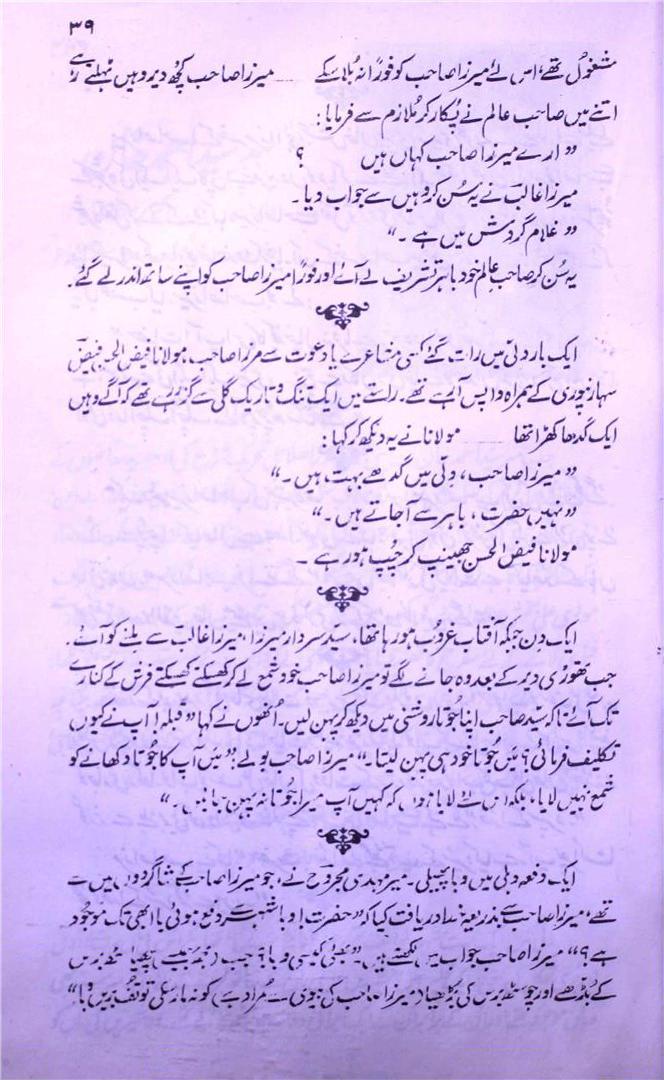 ۳۹
مشغول تھے، اس لئے میرزا صاحب کو فوراً نہ بلا سکے ـــــ میرزا صاحب کچھ دیر وہیں ٹہلتے رہے
اتنے میں صاحب عالم نے پکار کر ملازم سے فرمایا:
”ارے میرزا صاحب کہاں ہیں ؟
میرزا غالب نے یہ سُن کر وہیں سے جواب دیا۔
”غلام گردش میں ہے۔“
یہ سُن کر صاحب عالم خود باہر تشریف لے آئے اور فوراً میرزا صاحب کو اپنے ساتھ اندر لے گئے۔
ایک بار دلّی میں رات گئے کسی مشاعرے یا دعوت سے مرزا صاحب، مولانا فیض الحسن فیضؔ
سہارنپوری کے ہمراہ واپس آ رہے تھے۔ راستے میں ایک تنگ و تاریک گلی سے گزر رہے تھے کہ آگے وہیں
ایک گدھا کھڑا تھا ـــــ مولانا نے یہ دیکھ کر کہا:
”میرزا صاحب، دِلّی میں گدھے بہت ہیں۔“
”نہیں حضرت، باہر سے آ جاتے ہیں۔“
مولانا فیض الحسن جھینپ کر چپ ہو رہے۔
ایک دِن جبکہ آفتاب غروب ہو رہا تھا، سید سردار میرزا، میرزا غالب سے ملنے کو آئے۔
جب تھوڑی دیر کے بعد وہ جانے لگے تو میرزا صاحب خود شمع لے کر کھسکتے کھسکتے فرش کے کنارے
تک آئے تاکہ سیّد صاحب اپنا جُوتا روشنی میں دیکھ کر پہن لیں۔ اُنھوں نے کہا ”قبلہ! آپ نے کیوں
تکلیف فرمائی؟ میں جُوتا خود ہی پہن لیتا۔“ میرزا صاحب بولے: ”میں آپ کا جُوتا دکھانے کو
شمع نہیں لایا، بلکہ اس لئے لایا ہوں کہ کہیں آپ میرا جُوتا نہ پہن جائیں۔“
ایک دفعہ دلی میں وبا پھیلی۔ میر مہدی مجروحؔ نے، جو میرزا صاحب کے شاگردوں میں سے
تھے، میرزا صاحب سے بذریعہ خط دریافت کیا کہ ”حضرت! وبا شہر سے دفع ہوئی یا ابھی تک موجود
ہے؟“ میرزا صاحب جواب میں لکھتے ہیں۔ ”بھئی کیسی وبا؟ جب مجھ جیسے چھیاسٹھ برس
کے بُڈھے اور چونسٹھ برس کی بڑھیا (میرزا صاحب کی بیوی سے مُراد ہے) کو نہ مار سکی تو تُف بریں وبا!“